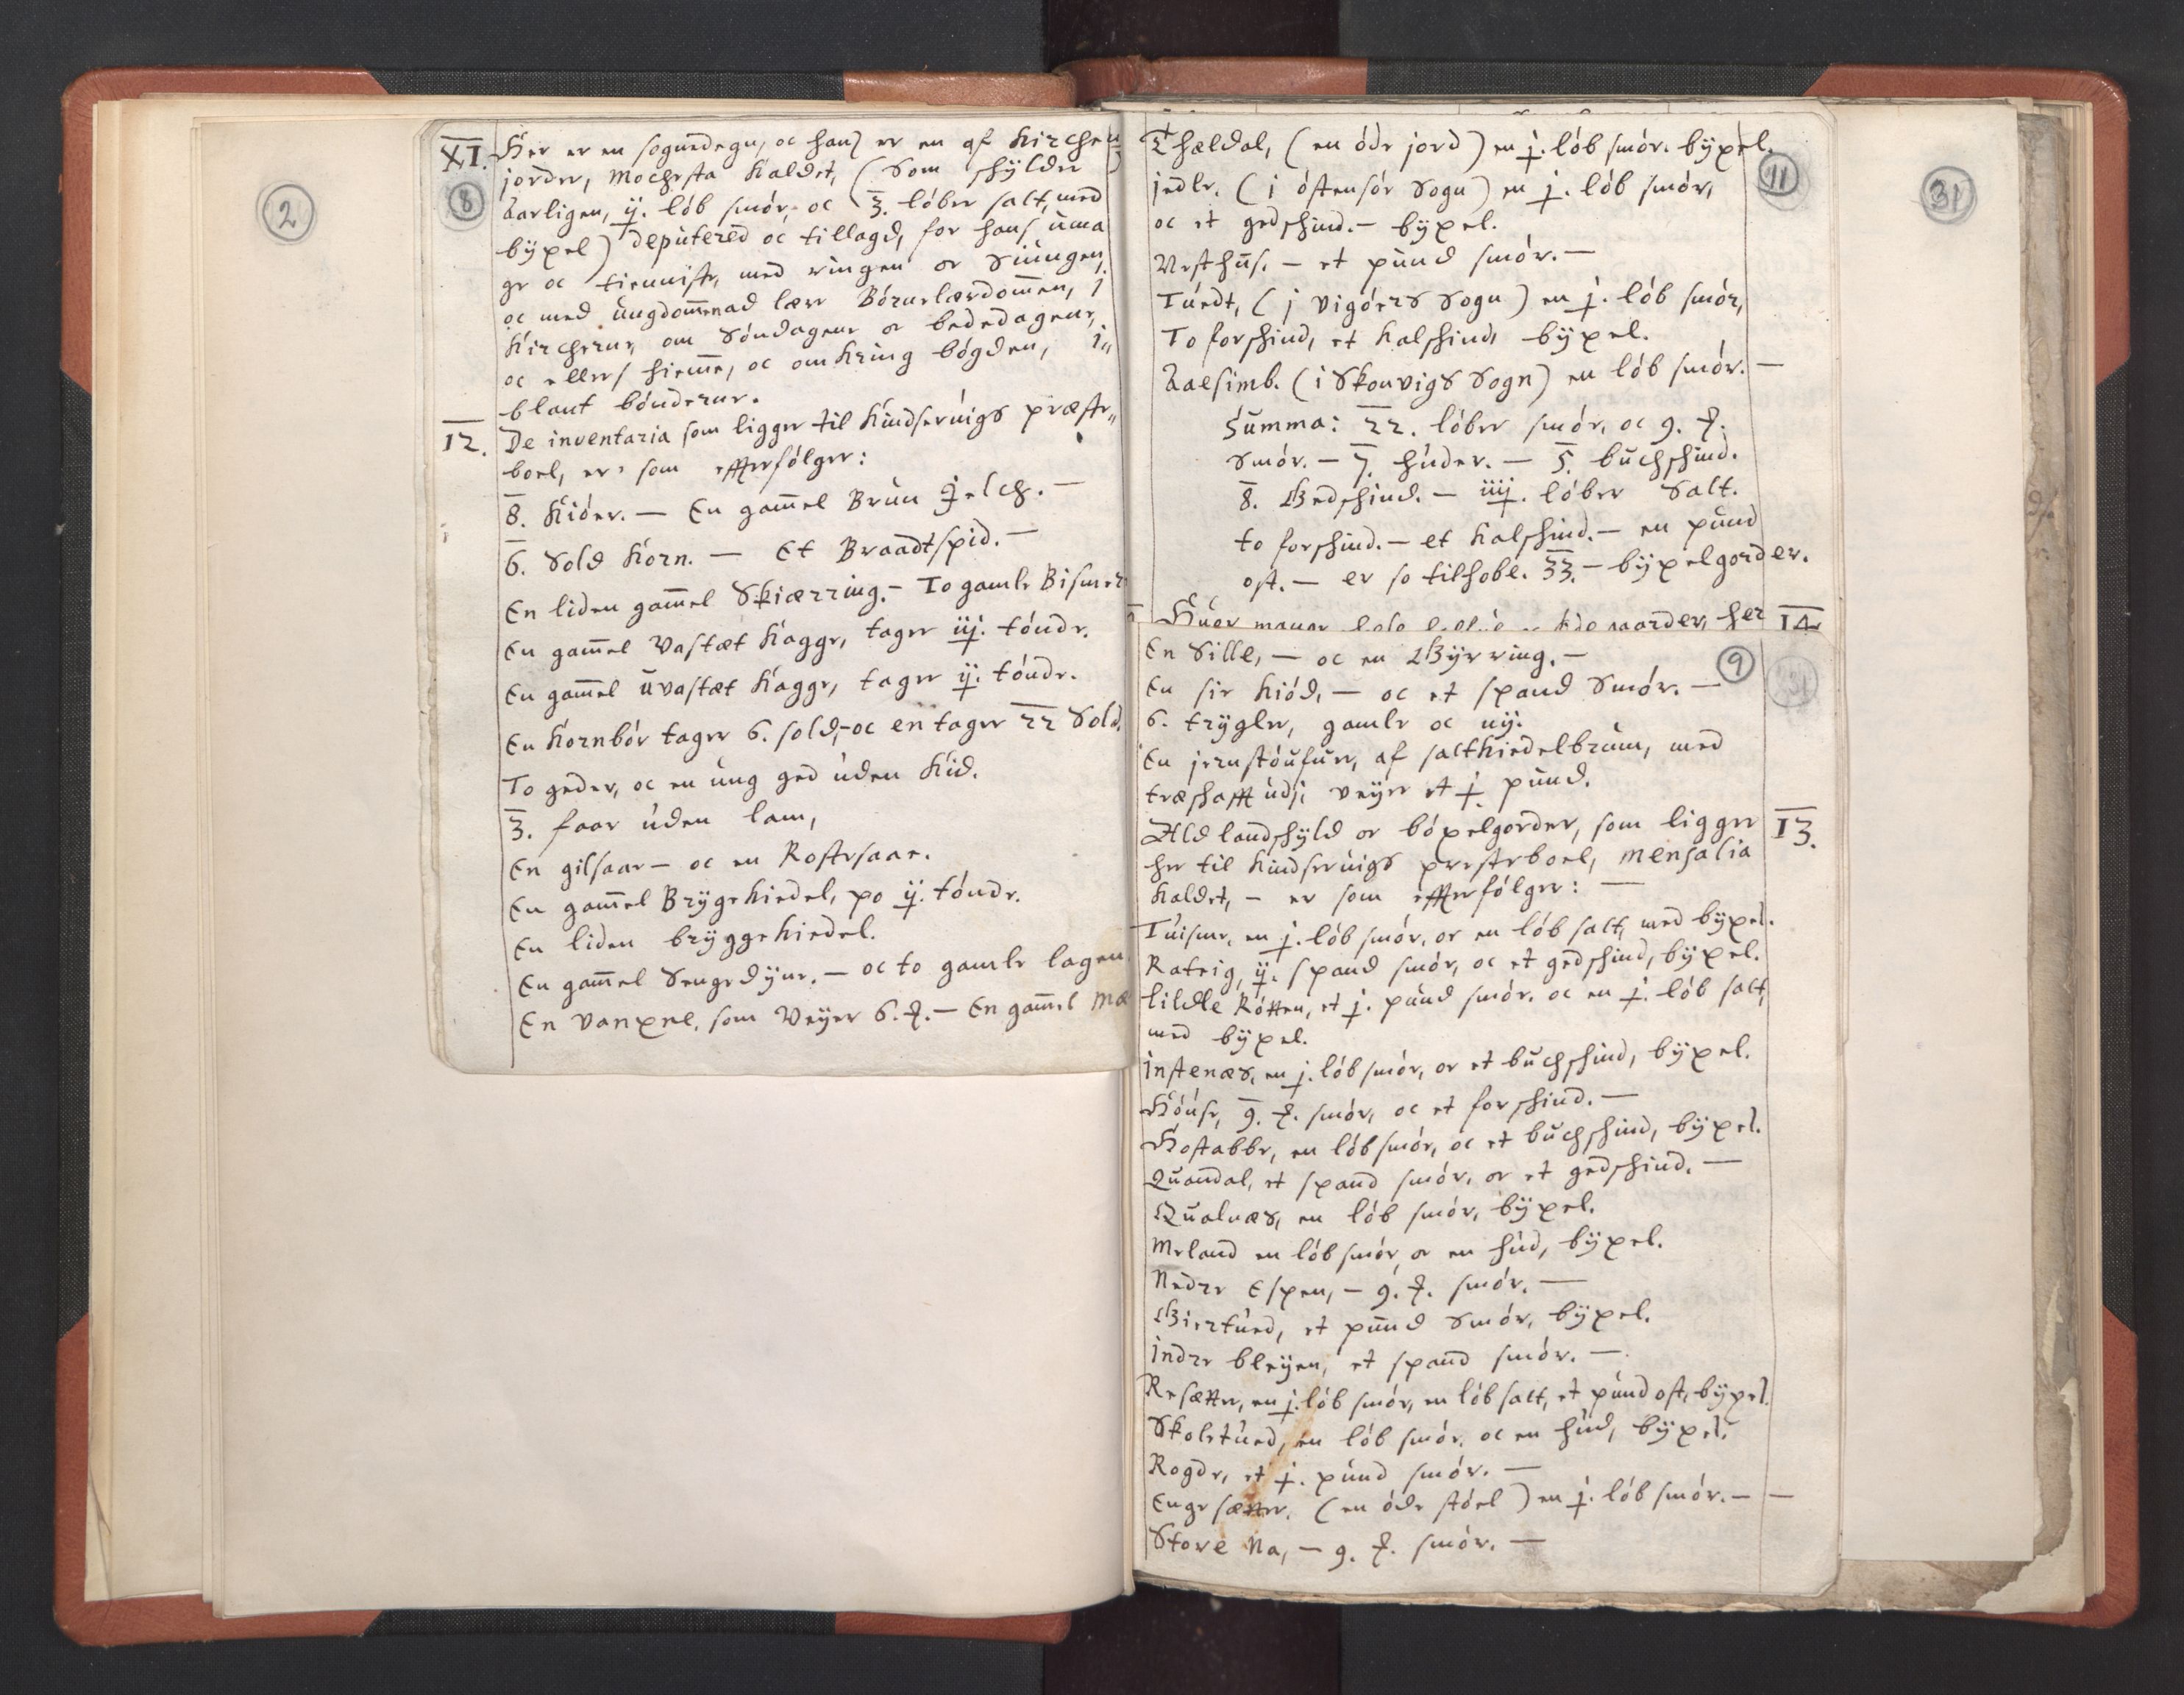 2
XI. Her er en sognedegn, oc hans er en af Kirchens
8
jorder, Mochesta kaldet, (som skÿlder
Aarligen, ij. lób smór, oc 3. lóber salt, med
bÿxel) deputered oc tillagd, for hans uma
ge oc tienniste, med ringen oc Siungen,
oc med ungdommenad lære Bórnelærdommen, j
Kircherne, om Sóndagene oc bededagene,
oc ellers hiemme, oc omkring bógden, i„
blant bónderne.
12. De inventaria som ligger til Kindseruigs præste„
boel, er, som effterfólger:
8. Kióer. — En gammel Brun helch. —
6. Sold Korn. — Et Braadtspid. —
En liden gammel Skiærring. — To gamle Bismer
En gammel Vastæt Kagge, tager iij. tónde.
En gammel uvastæt Kagge, tager ij. tónde.
En Kornbór tager 6. sold, oc en tager 22 Sold.
To geder, oc en ung ged uden Kid.
3. faar uden lam,
En gilsaar — oc en Rostesaar.
En gammel Brÿgekiedel, po ij. tónde.
En liden brÿggekiedel.
En gammel Sengedÿne. — oc to gamle lagen
En Vanxnl, som Veÿer 6. ℔. — En gammel Mæ
Thældal, (en óde jord) en j. lób smór. bÿxel.
11
31
jedle. (i óstensór Sogn) en j. lób smór,
oc et gedskind. — bÿxel.
Vesthus. — et pund smór. —
Tuedt, (j Vigórs Sogn) en j. lób smór,
To forskind, et Kalskind, bÿxel.
Aalsimb. (i Skonvigs Sogn) en lób smór. —
Summa: 22. lóber smór, oc 9. ℔.
Smór. — 7. huder. — 5. buchskind.
8. Gedskind. — iiij. lóber Salt.
to forskind. — et Kalskind. — en pund
ost. — er so tilhobe. 33. — bÿxelgorder.
14
En Sille, — oc en Bÿrring. —
9
En sie Kiód, — oc et spand Smór. —
6. trÿgler, gamle oc nÿ.
En jernstóufuer, af saltkiedelbrum, med
træskafft udj, veÿer et j. pund.
Ald landskÿld oc bóxelgorder, som ligger 13.
her til Kindseruigs presteboel, mensalia
kaldet, — er som effterfólger: —
Tuisme, en j. lób smór, oc en lób salt, med bÿxel.
Rateig, ij. spand smór, oc et gedskind, bÿxel.
lildle Rótten, et j. pund smór. oc en j. lób salt,
med bÿxel.
instenæs, en j. lób smór, oc et buchskind, bÿxel.
Hóuse, 9. ℔. smór, oc et forskind. —
Hostabbe, en lób smór, oc et buchskind, bÿxel.
Quandal, et spand smór, oc et gedskind. —
Qualnæs, en lób smór, bÿxel.
Meland en lób smór, oc en hud, bÿxel.
Nedre Espen, — 9. ℔. smór. —
Giertued, et pund Smór, bÿxel.
indre bleÿen, et spand smór. —
Resætter, en j. lób smór, en lób salt, et pund ost, bÿxel.
Skoletued, en lób smór, oc en hud, bÿxel.
Rogde, et j. pund smór. —
Enge sætter. (en óde stóel) en j. lób smór. — —
Store Na, — 9. ℔. smór. —